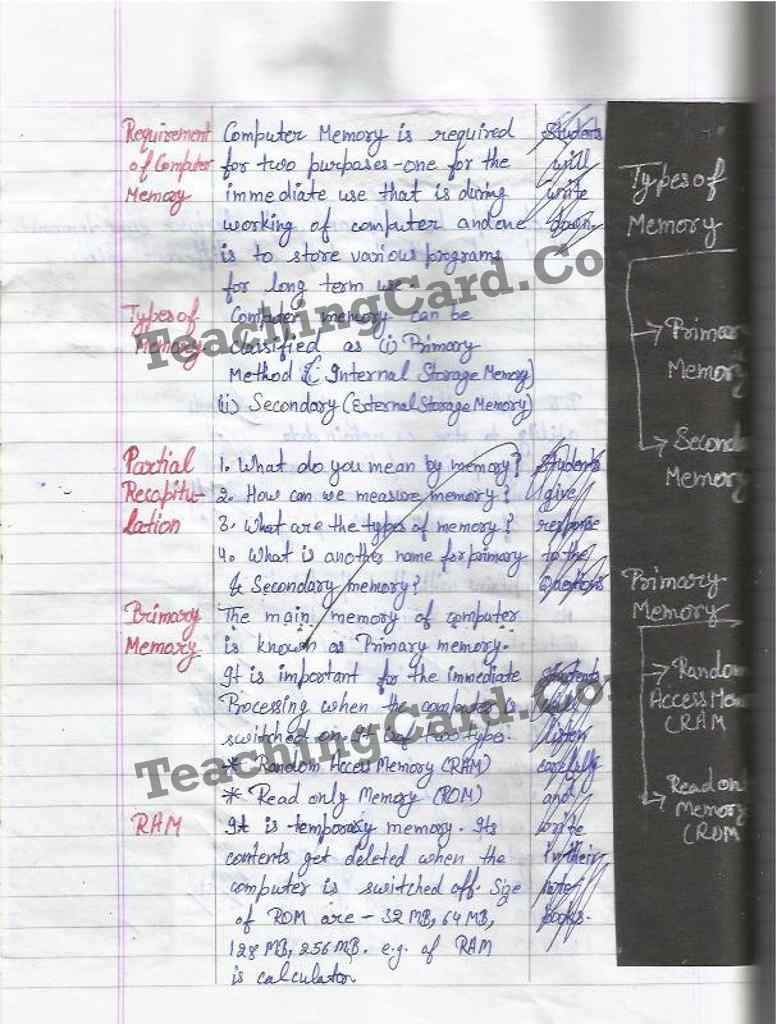 Requirement
of Computer
Memory
Computer Memory is required
for two purposes - one for the
immediate use that is during
working of computer and one
is to store various programs
for long term use.
Students
will
write
down
Types of
Memory
Computer memory can be
classified as (i) Primary
Method (: Internal Storage Memory)
(ii) Secondary (External Storage Memory)
TeachingCard.Co
Partial
Recapitu-
lation
1. What do you mean by memory?
2. How can we measure memory?
3. What are the types of memory?
4. What is another name for primary
& Secondary memory?
Students
give
response
to the
Questions
Primary
Memory
The main memory of computer
is known as Primary memory.
It is important for the immediate
Processing when the computer is
switched on. It is of two type.
* Random Access Memory (RAM)
* Read only Memory (ROM)
Students
listen
carefully
and
write
in their
note
books.
TeachingCard.Co
RAM
It is temporary memory. Its
contents get deleted when the
computer is switched off. Size
of ROM are - 32 MB, 64 MB,
128 MB, 256 MB. e.g. of RAM
is calculator
Types of
Memory
→ Primar
Memory
→ Seconda
Memory
Primary
Memory
→ Random
Access Mem
(RAM
→ Read on
Memory
(ROM